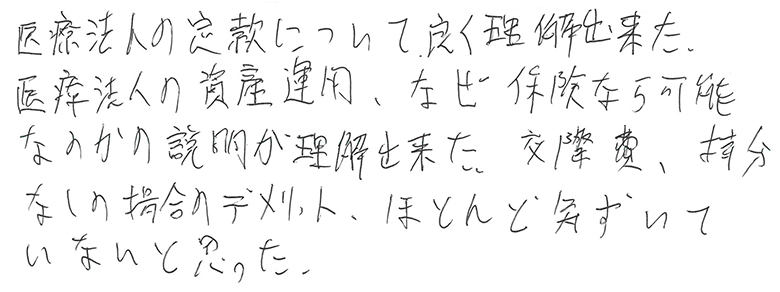 医療法人の定款について、良く理解出来た。
医療法人の資産運用、なぜ保険なら可能
なのかの説明が理解出来た。交際費、持分
なしの場合のデメリット、ほとんど気ずいて
いないと思った。